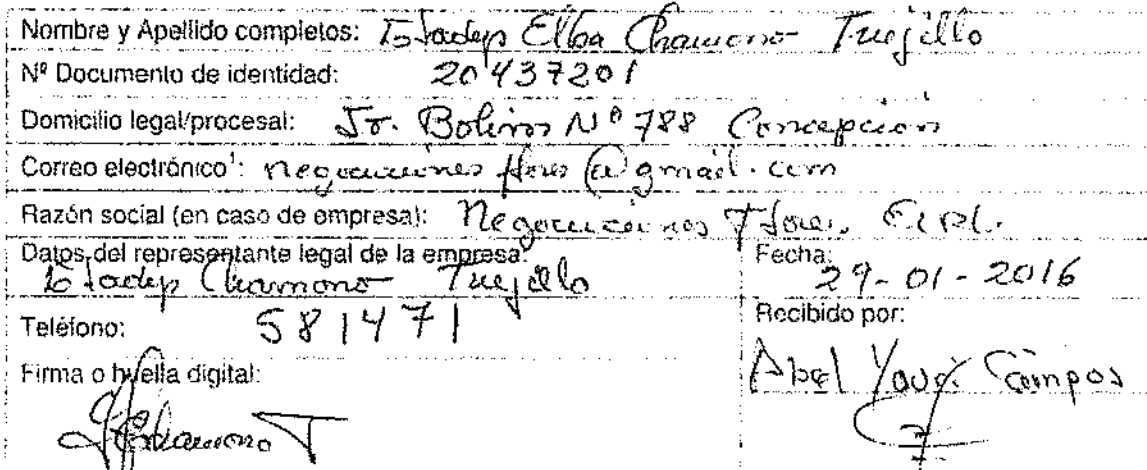 Nombre y Apellido completos: Elba Chamorro Trujillo
Nº Documento de identidad: 20437201
Domicilio legal/procesal: Jr. Bolivar Nº 788 Concepcion
Correo electrónico¹: negociaciones flores @ gmail.com
Razón social (en caso de empresa): Negociaciones Flores E.I.R.L.
Datos del representante legal de la empresa: Chamorro Trujillo
Fecha: 29-01-2016
Teléfono: 581471
Recibido por: Abel Campos
Firma o huella digital: